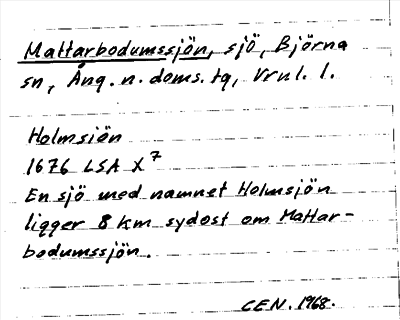 Mattarbodumssjön, sjö, Björna
sn, Ång. n. doms. tg, Vrnl. l.
Holmsjön
1676 LSA X7
En sjö med namnet Holmsjön
ligger 8 km sydost om Mattar-
bodumssjön.
CEN. 1968.